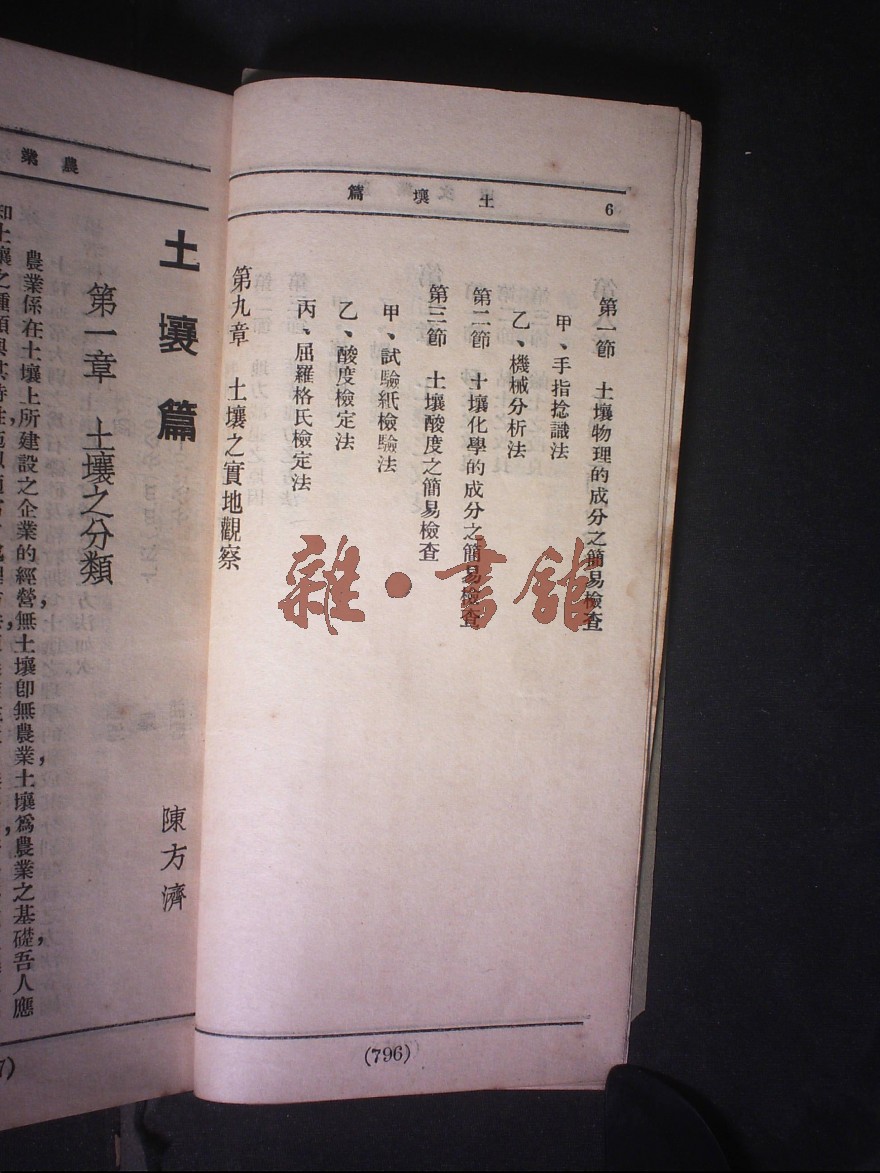 土壤篇 6
第一節 土壤物理的成分之簡易檢查
甲、手指捻識法
乙、機械分析法
第二節 土壤化學的成分之簡易檢查
第三節 土壤酸度之簡易檢查
甲、試驗紙檢驗法
乙、酸度檢定法
丙、屈羅格氏檢定法
第九章 土壤之實地觀察
(796)
雜·書館
農業
土壤篇
陳方濟
第一章 土壤之分類
農業係在土壤上所建設之企業的經營,無土壤卽無農業,土壤爲農業之基礎,吾人應
知土壤之種類與其特性